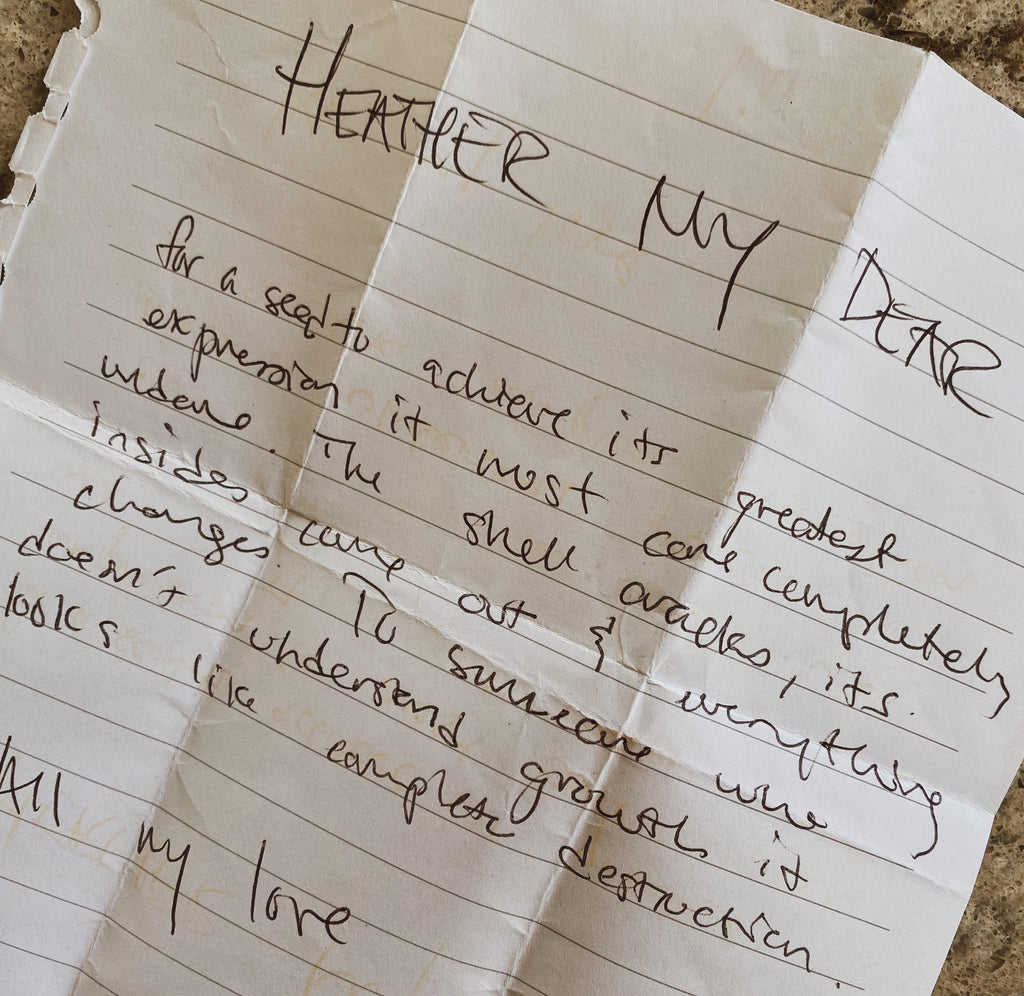 HEATHER MY DEAR
for a seed to achieve its greatest
expression it most come completely
undone. The shell cracks, its
insides come out & everything
changes. To someone who
doesn't understand growth it
looks like complete destruction.
All my love